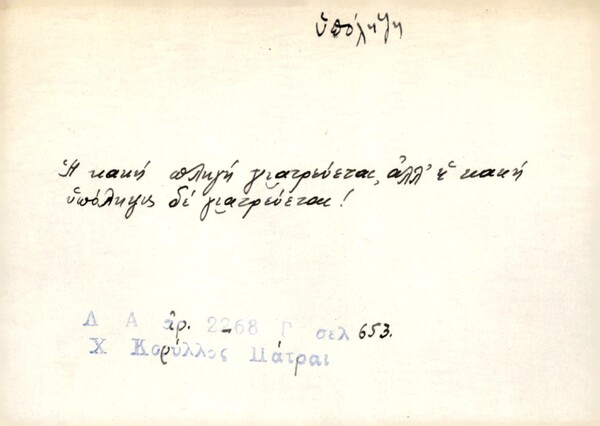 ὑπόληψη
Ἡ κακή πληγή γιατρεύεται, ἀλλ' ἡ κακή
ὑπόληψις δέ γιατρεύεται!
Λ Α ἀρ. 2268 Γ σελ 653.
Χ Κορύλλος Πάτραι